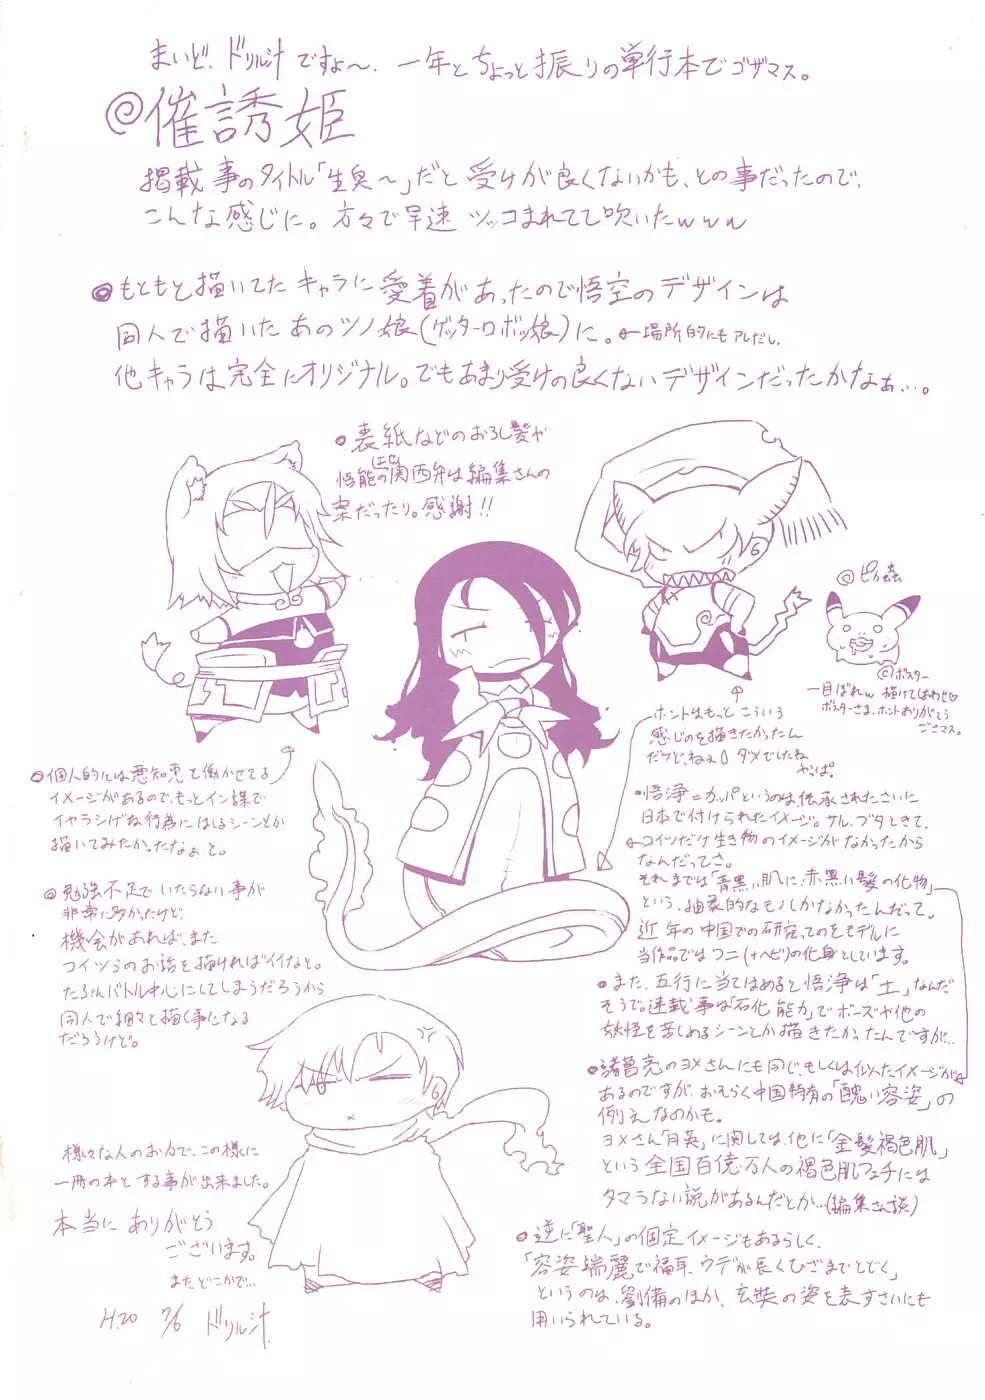 まいど、ドリル汁ですよ〜、一年とちょっと振りの単行本でゴザマス。
@催誘姫
掲載事のタイトル「生臭〜」だと受けが良くないかも、との事だったので、
こんな感じに。方々で早速ツッコまれてて吹いたwww
もともと描いてたキャラに愛着があったので悟空のデザインは
同人で描いたあのツノ娘(ゲッターロボッ娘)に。←場所的にもアレだし、
他キャラは完全にオリジナル。でもあまり受けの良くないデザインだったかなぁ…。
表紙などのおろし髪や
悟能の関西弁は編集さんの
案だったり。感謝!!
@ピカ蟲
©ボスター
一目ぼれw 描けてしあわせ♡
ボスターさま、ホントありがとう
ござマス。
ホントはもっとこういう
感じのを描きたかったん
だけど、ねぇ ダメでしたね
やっぱ。
個人的には悪知恵を働かせてる
イメージがあるので、もっとイン謀で
イヤラシげな行為にはしるシーンとか
描いてみたかったなぁと。
勉強不足でいたらない事が
非常に多かったけど
機会があれば、また
コイツらのお話を描ければイイなと。
たぶんバトル中心にしてしまうだろうから
同人で細々と描く事になる
だろうけど。
悟浄=カッパというのは、伝承されたさいに
日本で付けられたイメージ。サル、ブタときて、
←コイツだけ生き物のイメージがなかったから
なんだってさ。
それまでは「青黒い肌に、赤黒い髪の化物」
という、抽象的なモノしかなかったんだって。
近年の中国での研究、そのモデルに
当作品ではワニ(+ヘビ)の化身としています。
また、五行に当てはめると悟浄は「土」なんだ
そうで。連載事は石化能力でボーズや他の
妖怪を苦しめるシーンとか描きたかったんですが…
諸葛亮のヨメさんにも同じ、もしくは似たイメージが
あるのですが、おそらく中国特有の「醜い容姿」の
例えなのかも。
ヨメさん「月英」に関しては、他に「金髪褐色肌」
という全国百億万人の褐色肌フェチには
タマラない説があるんだとか…(編集さん談)
逆に「聖人」の固定イメージもあるらしく、
「容姿端麗で福耳、ウデが長くひざまでとどく」
というのは、劉備のほか、玄奘の姿を表すさいにも
用いられている。
様々な人のお力で、この様に
一冊の本とする事が出来ました。
本当にありがとう
ございます。
またどこかで…
H.20 7/6 ドリル汁